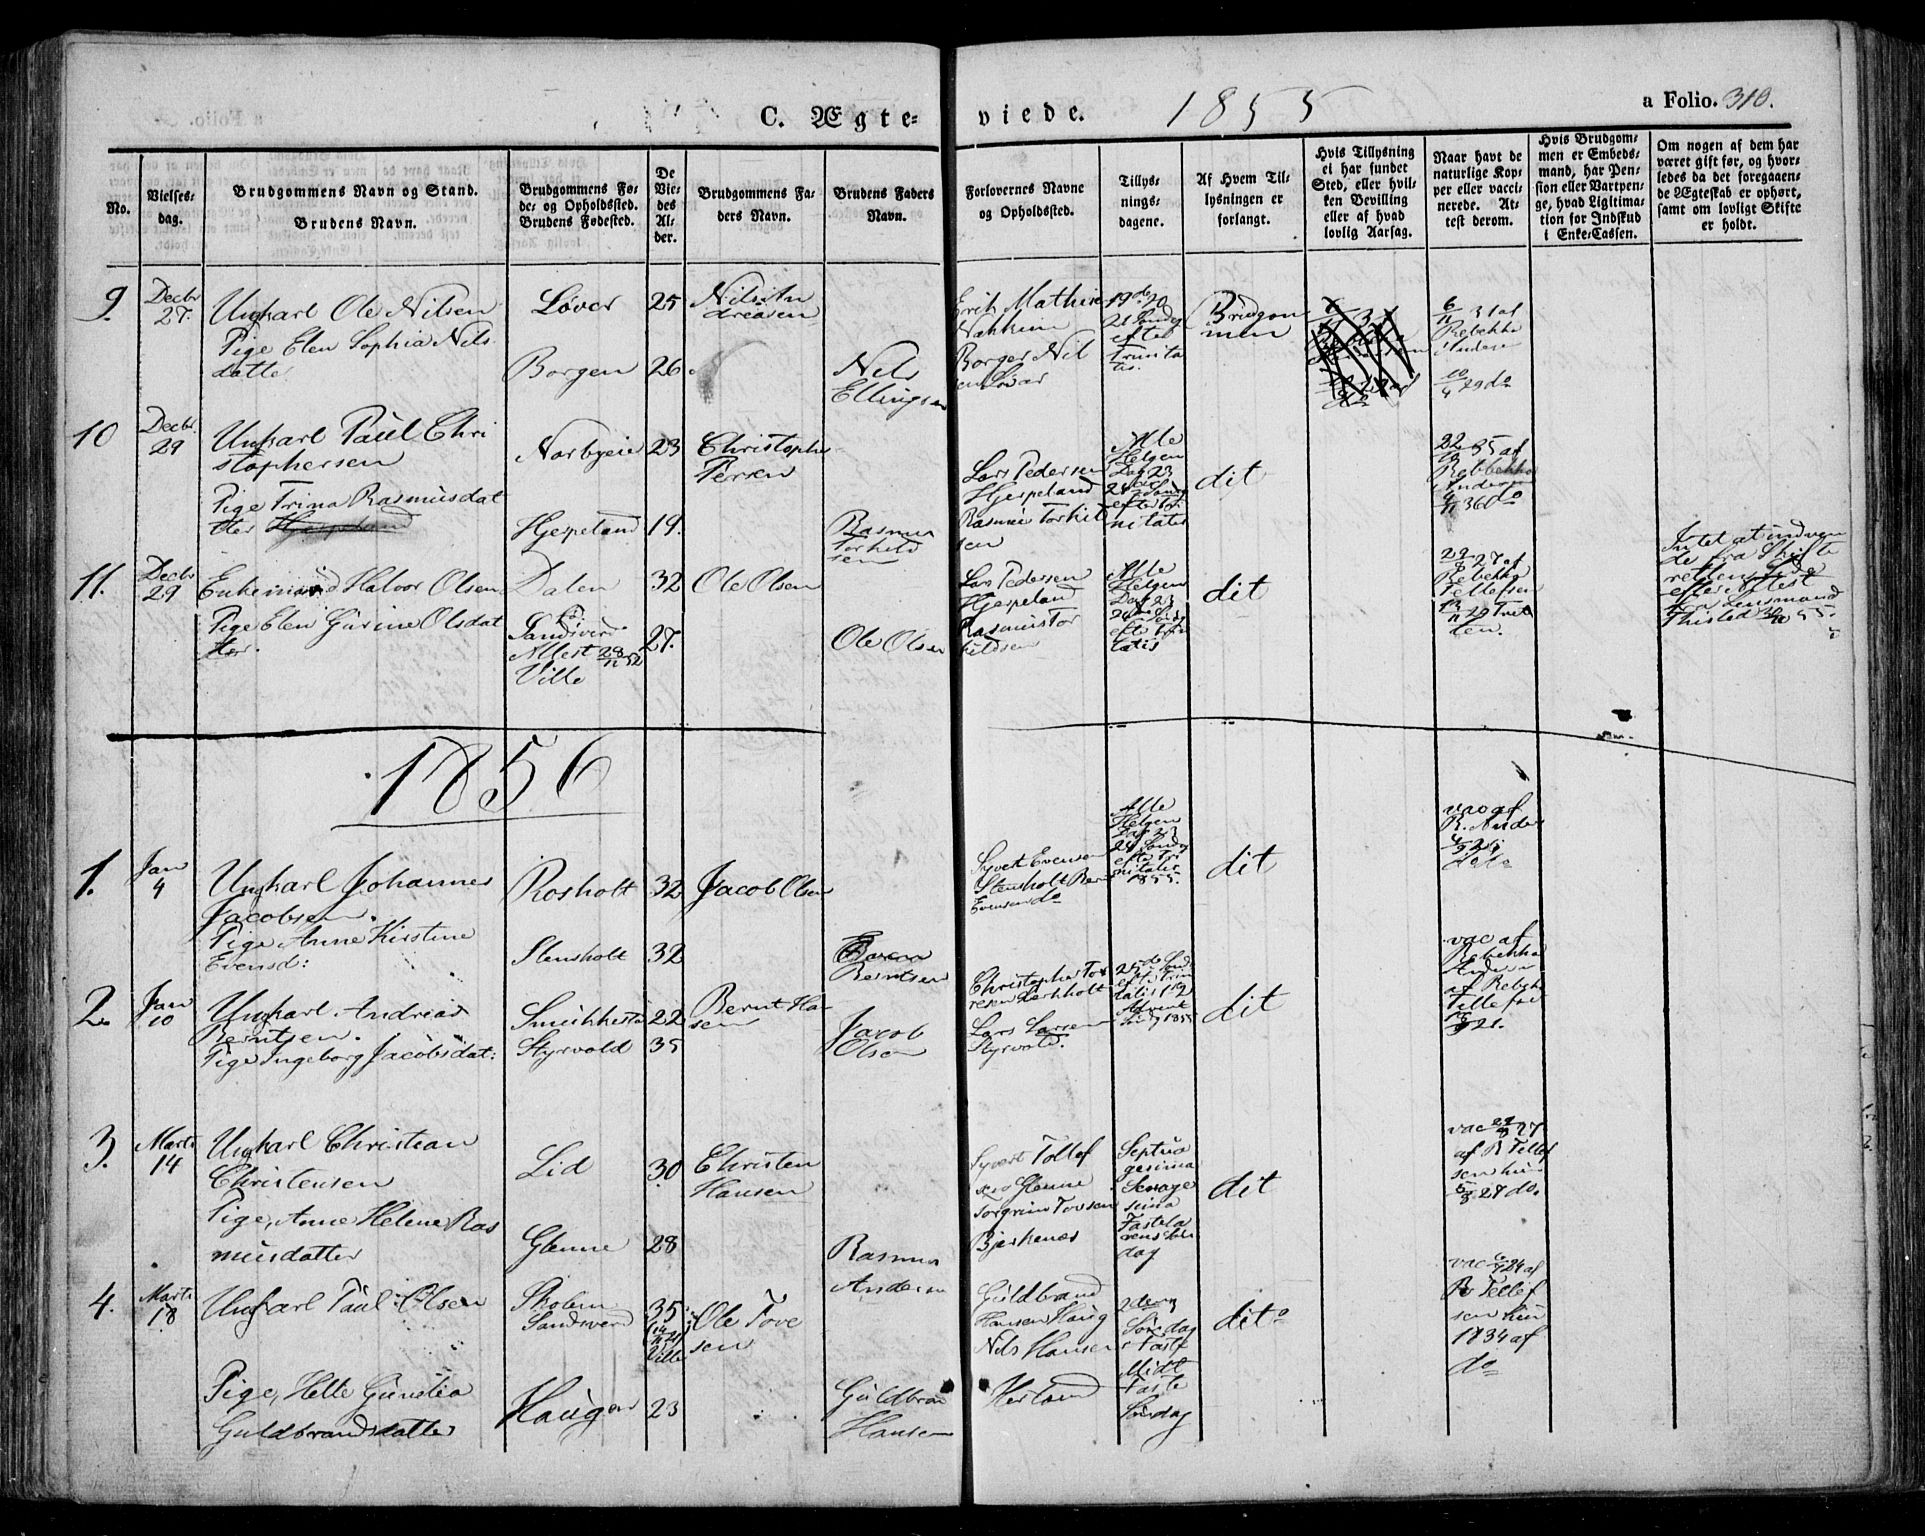 C. Ægte-
viede.
1855
a Folio. 310.
No.
Vielses-
dag.
Brudgommens Navn og Stand.
Brudens Navn.
Brudgommens Fø-
de- og Opholdssted.
Brudens Fødested.
De
Vie-
des
Al-
der.
Brudgommens Fa-
ders Navn.
Brudens Faders
Navn.
Forlovernes Navne
og Opholdssted.
Tillys-
nings-
dagene.
Af Hvem Til-
lysningen er
forlangt.
Hvis Tillysning
ei har fundet
Sted, eller hvil-
ken Bevilling
eller af hvad
lovlig Aarsag.
Naar havt de
naturlige Kop-
per eller vacci-
nerede. At-
test derom.
Hvis Brudgom-
men er Embeds-
mand, har Pen-
sion eller Vartpen-
ge, hvad Ligitima-
tion for Indskud
i Enke-Cassen.
Om nogen af dem har
været gift før, og hvor-
ledes da det foregaaen-
de Ægteskab er ophørt,
samt om lovligt Skifte
er holdt.
9.
Decbr
27.
Ungkarl Ole Nilsen
Pige Elen Sophia Nils
datter
Løver
Borgen
25
26
Nils An
dreasen
Nels
Ellingsen
Erik Mathise
Nakken
Borger Nil
sen Løver
19de 20
21 Søndag
efter
Trinita
tis.
Brudgom
men
6/11 31 af
Rebekka
Anderse
10/4 29 do
10
Decbr.
29
Ungkarl Paul Chri
stophersen
Pige Trina Rasmusdat
ter Hjespeland
Norbyeie
Hjespeland
23
19.
Christopher
Persen
Rasmus
Torkild
sen
Lars Pedersen
Hjespeland
Rasmus Torkil
sen
Alle
Helgen
Dag 23
24 Sønd
efter Tri
nitatis
dit
35 af
Rebbekka
Anders
36 do
11.
Decbr
29
Enkemand Halvor Olsen
Pige Elen Gurine Olsdat
ter.
Dalen
Sandsverd
Attest 28/11 52
Ville
32
27.
Ole Olsen
Ole Olsen
Lars Pedersen
Hjespeland
Rasmus Tor
kildsen
Alle
Helgen
Dag 23
24 Sønd
efter Tri
tatis
dit
27 af
Rebekka
Tellefsen
Intet at indven
de fra Skifte
rettens Side
efter Attest
fra Lensmand
Thisted 55.
1856
1.
Jan
4
Ungkarl Johannes
Jacobsen.
Pige Anne Kirstine
Evensd:
Rosholt
Stensholt
32
32
Jacob Olsen
Even
Berntsen
Syvert Evensen
Stensholt Bernt
Evensen do
Alle
Helgen
Dag 23
24 Sønd
efter Tri
nitatis
1855.
dit
vac af
R. Anders
2.
Jan
10
Ungkarl. Andreas
Berntsen.
Pige Ingeborg Jacobsdat:
Smukkestad
Styrvold
22
35
Bernt Han
sen
Jacob
Olsen
Christopher Tor
resen Lerkholt
Lars Larsen
Styrvold.
25de Sønd
efter Trin
tatis 1 og 2
Advent
Sønd 1855
dit
vac af
Rebekka
Anders
af Rebek
Tillefsen
3.
Marts
14
Ungkarl Christian
Christensen
Pige, Anne Helene Ras
musdatter
Lid
Glenne
30
28
Christen
Hansen
Rasmus
Andersen
Syvert Tollef
sen Glenne
Torgrim Tovsen
Bjerkenæs
Septua
gesima
Sexage
sima
Fastela
vens Søn
dag
dit
vac 27
af R Tellef
sen hun
27 do.
4.
Marts
18
Ungkarl Paul Olsen
Pige, Helle Gunelia
Guldbrandsdatter
Skolem
Sandsverd
Haugen
35
Ville
23
Ole Tove
sen
Guldbran
Hansen
Guldbrand
Hansen Haug
Nels Hansen
2den
Søndag
i Faste
Midt
Faste
Søndag
dito
vac 24 af
R Tellef
sen hun
1834 af
do